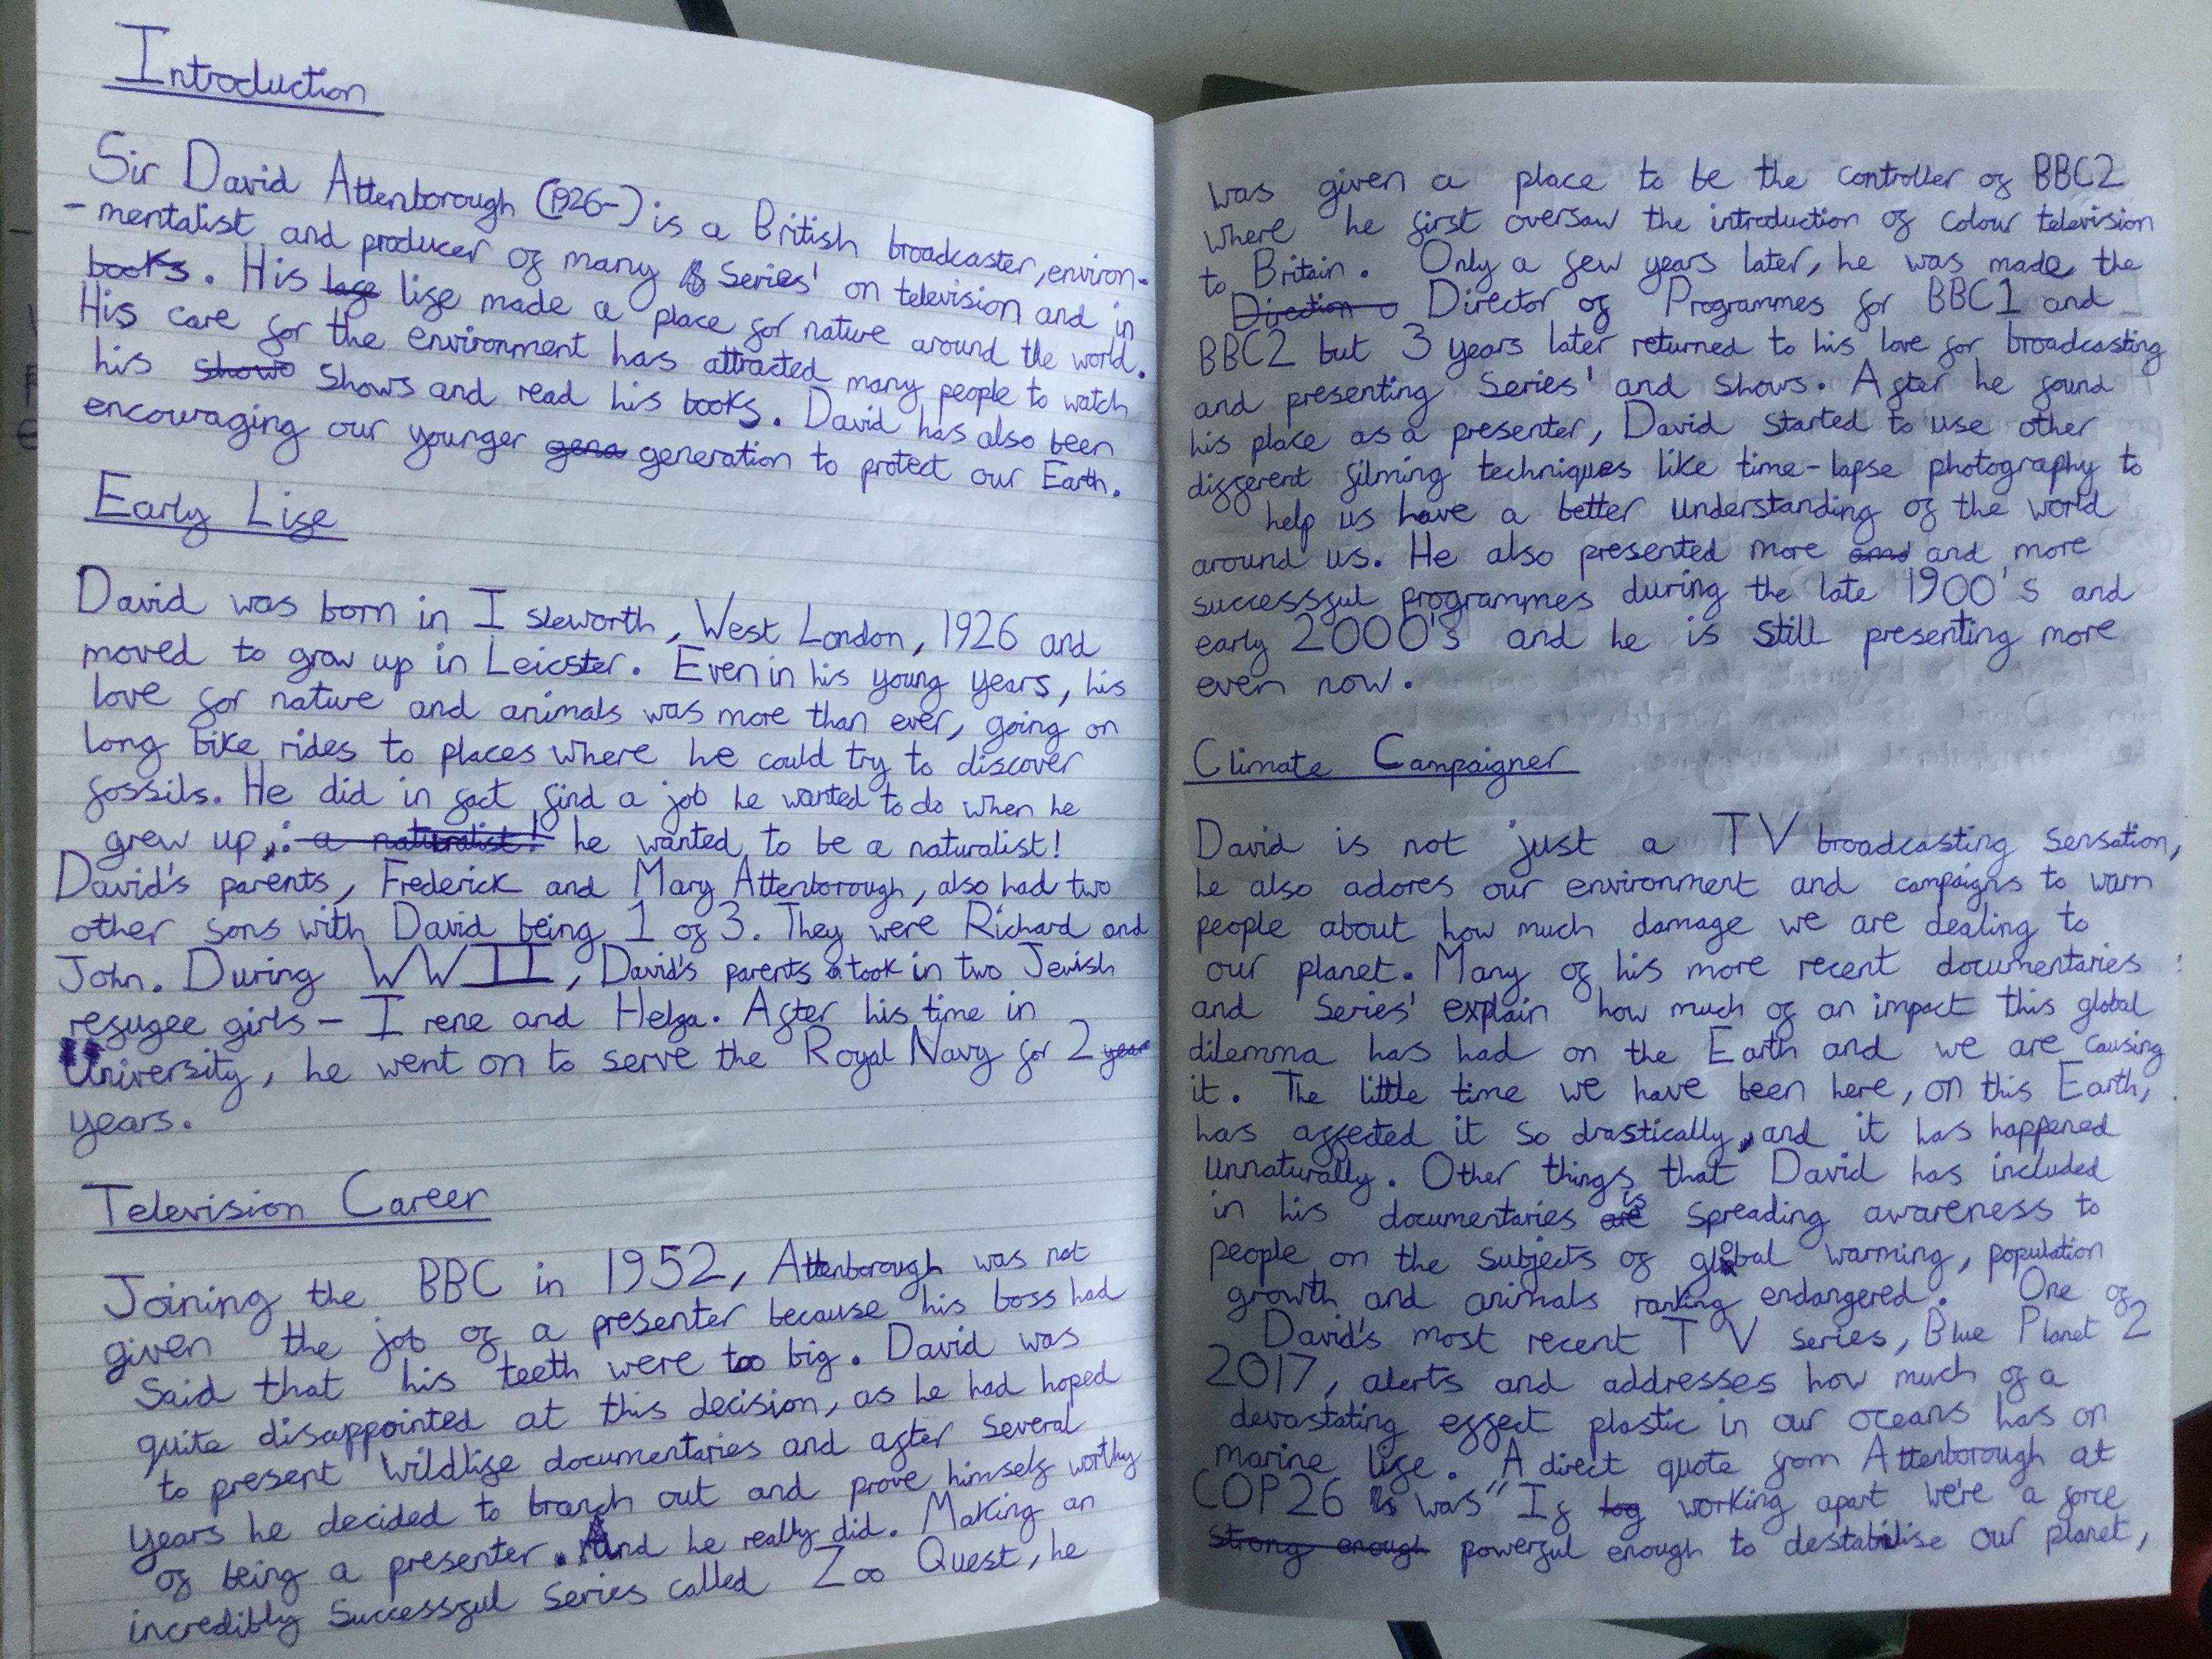 Introduction
Sir David Attenborough (1926-) is a British broadcaster, environ-
-mentalist and producer of many Series' on television and in
books. His life made a place for nature around the world.
His care for the environment has attracted many people to watch
his shows and read his books. David has also been
encouraging our younger generation to protect our Earth.
Early Life
David was born in Isleworth, West London, 1926 and
moved to grow up in Leicster. Even in his young years, his
love for nature and animals was more than ever, going on
long bike rides to places where he could try to discover
fossils. He did in fact find a job he wanted to do when he
grew up, : a naturalist! he wanted to be a naturalist!
David's parents, Frederick and Mary Attenborough, also had two
other sons with David being 1 of 3. They were Richard and
John. During WWII, David's parents took in two Jewish
refugee girls - Irene and Helga. After his time in
University, he went on to serve the Royal Navy for 2 year
years.
Television Career
Joining the BBC in 1952, Attenborough was not
given the job of a presenter because his boss had
said that his teeth were too big. David was
quite disappointed at this decision, as he had hoped
to present wildlife documentaries and after several
years he decided to branch out and prove himself worthy
of being a presenter. And he really did. Making an
incredibly successful series called Zoo Quest, he
was given a place to be the controller of BBC2
where he first oversaw the introduction of colour television
to Britain. Only a few years later, he was made the
Direction o Director of Programmes for BBC1 and
BBC2 but 3 years later returned to his love for broadcasting
and presenting series' and shows. After he found
his place as a presenter, David started to use other
different filming techniques like time-lapse photography to
help us have a better understanding of the world
around us. He also presented more and and more
successful programmes during the late 1900's and
early 2000's and he is still presenting more
even now.
Climate Campaigner
David is not just a TV broadcasting sensation,
he also adores our environment and campaigns to warn
people about how much damage we are dealing to
our planet. Many of his more recent documentaries
and series' explain how much of an impact this global
dilemma has had on the Earth and we are causing
it. The little time we have been here, on this Earth,
has affected it so drastically, and it has happened
unnaturally. Other things that David has included
in his documentaries is spreading awareness to
people on the subjects of global warming, population
growth and animals ranking endangered. One of
David's most recent TV series, Blue Planet 2
2017, alerts and addresses how much of a
devastating effect plastic in our oceans has on
marine life. A direct quote from Attenborough at
COP26 was "If working apart we're a force
strong enough powerful enough to destabilise our planet,